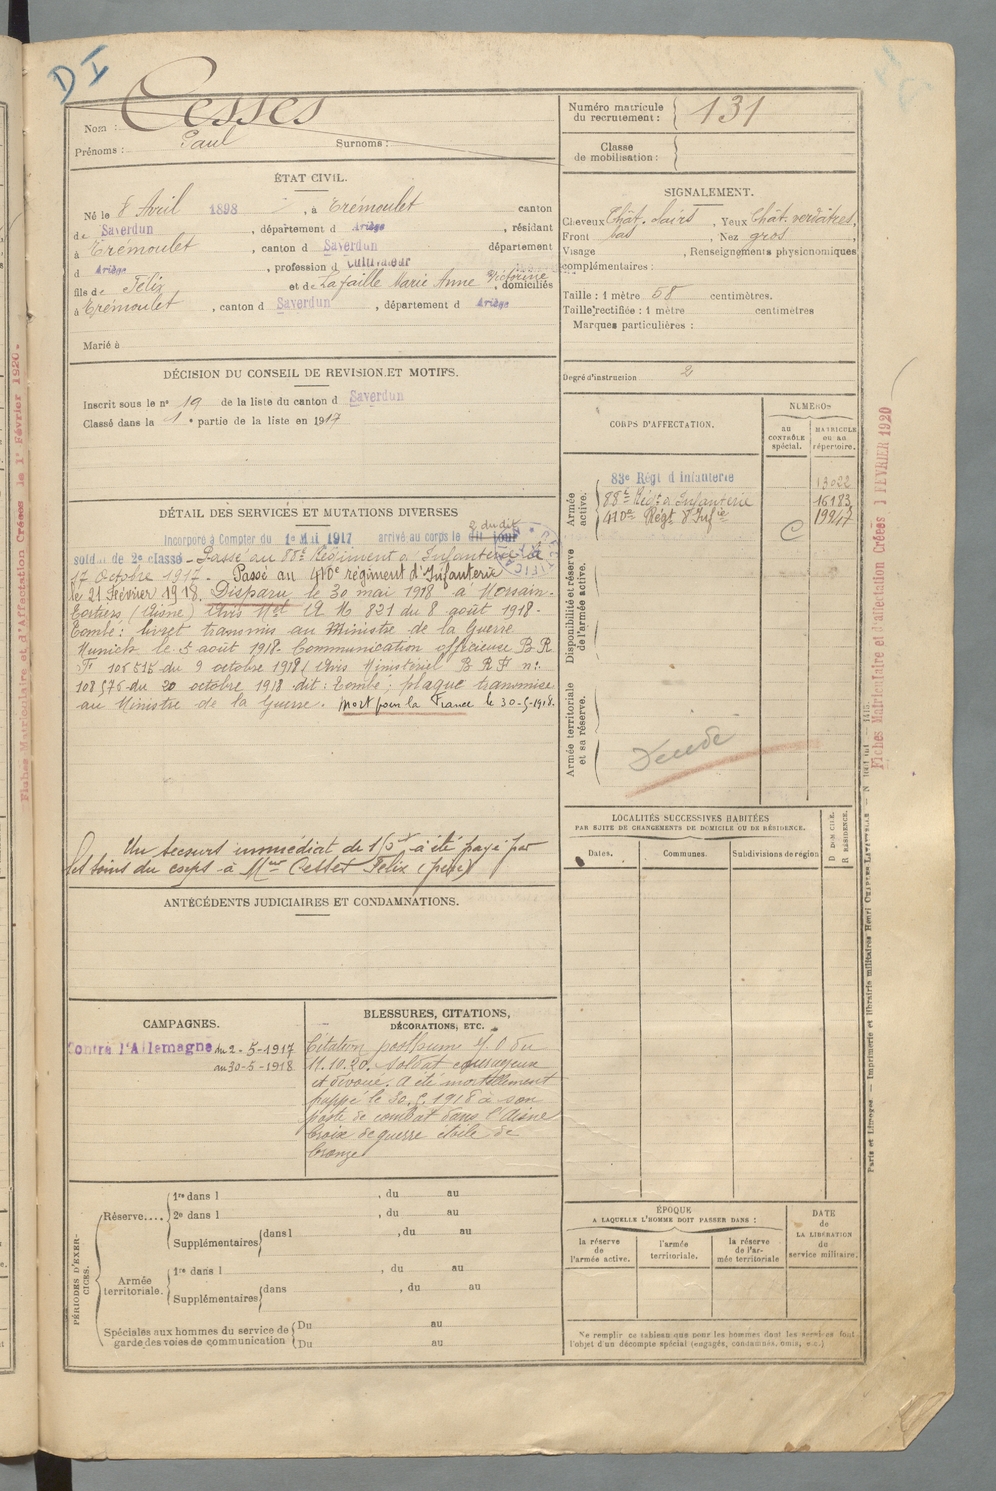 D I
Nom : Cesses
Prénoms : Paul Surnoms :
ÉTAT CIVIL.
Né le 8 Avril 1898, à Trémoulet canton
de Saverdun, département d Ariège, résidant
à Trémoulet, canton d Saverdun département
d Ariège, profession d Cultivateur
fils de Félix et de Lafaille Marie Anne Victorine, domiciliés
à Trémoulet, canton d Saverdun, département d Ariège
Marié à
DÉCISION DU CONSEIL DE REVISION ET MOTIFS.
Inscrit sous le nº 19 de la liste du canton d Saverdun
Classé dans la 1e partie de la liste en 1917
DÉTAIL DES SERVICES ET MUTATIONS DIVERSES
Incorporé à Compter du 1er Mai 1917 arrivé au corps le dit jour 2 du dit
soldat de 2e classe - Passé au 88e Régiment d'Infanterie le
17 Octobre 1917. Passé au 410e régiment d'Infanterie
le 21 Février 1918. Disparu le 30 mai 1918 à Morsain-
(Aisne) Avis Mel 821 du 8 août 1918.
Tombé : livret transmis au Ministre de la Guerre
Munich le 5 août 1918. Communication officieuse B R
F 105515 du 9 octobre 1918. Avis Ministériel B R F nº
108576 du 20 octobre 1918 dit : Tombé ; plaque transmise
au Ministre de la Guerre. Mort pour la France le 30-5-1918.
Un secours immédiat de 150f a été payé par
les soins du corps à Mr Cesses Félix (père)
ANTÉCÉDENTS JUDICIAIRES ET CONDAMNATIONS.
CAMPAGNES.
Contre l'Allemagne du 2-5-1917
au 30-5-1918
BLESSURES, CITATIONS,
DÉCORATIONS, ETC.
Citation posthume J.O du
11.10.20. Soldat courageux
et dévoué. A été mortellement
frappé le 30.5.1918 à son
poste de combat dans l'Aisne
Croix de guerre étoile de
bronze
PÉRIODES D'EXERCICES.
Réserve....
1re dans l , du au
2e dans l , du au
Supplémentaires dans l , du au
Armée territoriale.
1re dans l , du au
Supplémentaires dans , du au
Spéciales aux hommes du service de
garde des voies de communication
Du au
Du au
Numéro matricule
du recrutement : 131
Classe
de mobilisation :
SIGNALEMENT.
Cheveux Chât. clairs, Yeux Chât. verdâtres,
Front bas, Nez gros
Visage , Renseignements physionomiques
complémentaires :
Taille : 1 mètre 58 centimètres.
Taille rectifiée : 1 mètre centimètres
Marques particulières :
Degré d'instruction 2
CORPS D'AFFECTATION.
NUMÉROS
au
CONTRÔLE
spécial.
MATRICULE
ou au
répertoire.
Armée
active.
83e Régt d'infanterie 13022
88e Régt d'Infanterie 16183
410e Régt d'Infie 19247
C
Disponibilité et réserve
de l'armée active.
Armée territoriale
et sa réserve.
Décédé
LOCALITÉS SUCCESSIVES HABITÉES
PAR SUITE DE CHANGEMENTS DE DOMICILE OU DE RÉSIDENCE.
Dates.
Communes.
Subdivisions de région
D DOMICILE.
R RÉSIDENCE.
ÉPOQUE
A LAQUELLE L'HOMME DOIT PASSER DANS :
la réserve
de
l'armée active.
l'armée
territoriale.
la réserve
de l'ar-
mée territoriale
DATE
de
LA LIBÉRATION
du
service militaire.
Ne remplir ce tableau que pour les hommes dont les services font
l'objet d'un décompte spécial (engagés, condamnés, omis, etc.)
Fiches Matriculaire et d'Affectation Créées le 1er Février 1920
Fiches Matriculaire et d'affectation Créées 1 FEVRIER 1920
Paris et Limoges. — Imprimerie et librairie militaires Henri CHARLES-LAVAUZELLE